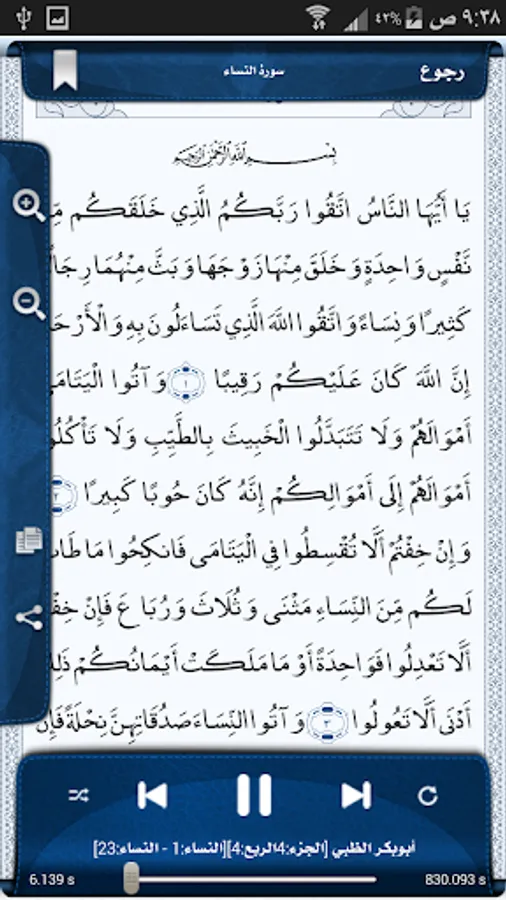 ٩:٣٨ ص ٤٢%
رجوع سورة النساء
بسم الله الرحمن الرحيم
يَا أَيُّهَا النَّاسُ اتَّقُوا رَبَّكُمُ الَّذِي خَلَقَكُم
نَّفْسٍ وَاحِدَةٍ وَخَلَقَ مِنْهَا زَوْجَهَا وَبَثَّ مِنْهُمَا رِجَالً
كَثِيرًا وَنِسَاءً وَاتَّقُوا اللَّهَ الَّذِي تَسَاءَلُونَ بِهِ وَالْأَرْحَ
إِنَّ اللَّهَ كَانَ عَلَيْكُمْ رَقِيبًا ١ وَآتُوا الْيَتَامَى
أَمْوَالَهُمْ وَلَا تَتَبَدَّلُوا الْخَبِيثَ بِالطَّيِّبِ وَلَا تَأْكُلُو
أَمْوَالَهُمْ إِلَى أَمْوَالِكُمْ إِنَّهُ كَانَ حُوبًا كَبِيرًا ٢
وَإِنْ خِفْتُمْ أَلَّا تُقْسِطُوا فِي الْيَتَامَى فَانكِحُوا مَا طَابَ
لَكُم مِّنَ النِّسَاءِ مَثْنَى وَثُلَاثَ وَرُبَاعَ فَإِنْ خِفْ
أَلَّا تَعْدِلُوا فَوَاحِدَةً أَوْ مَا مَلَكَتْ أَيْمَانُكُمْ ذَلِ
أَدْنَى أَلَّا تَعُولُوا ٣ وَآتُوا النِّسَاءَ صَدُقَاتِهِنَّ نِحْلَةً فَإِن
أبوبكر الظبي [الجزء:4الربع:4][النساء:1 - النساء:23]
6.139 s 830.093 s